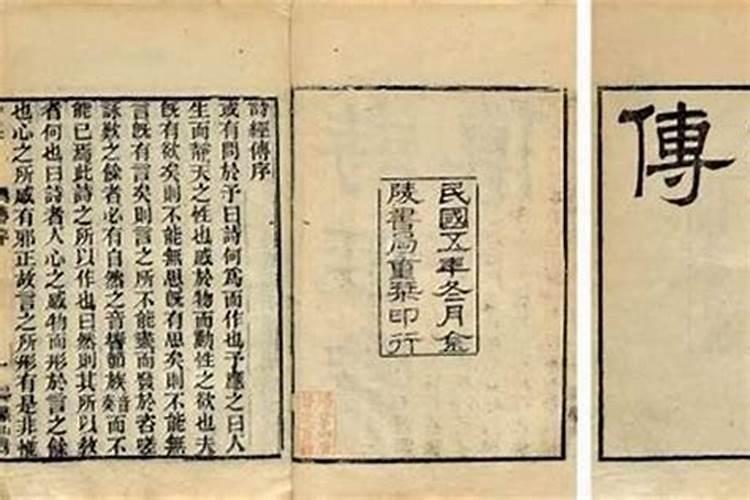 傳
民國五年冬月金
陵書局重槧印行
詩經傳序
或有問於予曰詩何爲而作也予應之曰人
生而靜天之性也感於物而動性之欲也夫
既有欲矣則不能無思既有思矣則不能無
言既有言矣則言之所不能盡而發於咨嗟
詠歎之餘者必有自然之音響節族音奏而不
能已焉此詩之所以作也曰然則其所以敎
者何也曰詩者人心之感物而形於言之餘
也心之所感有邪正故言之所形有是非惟